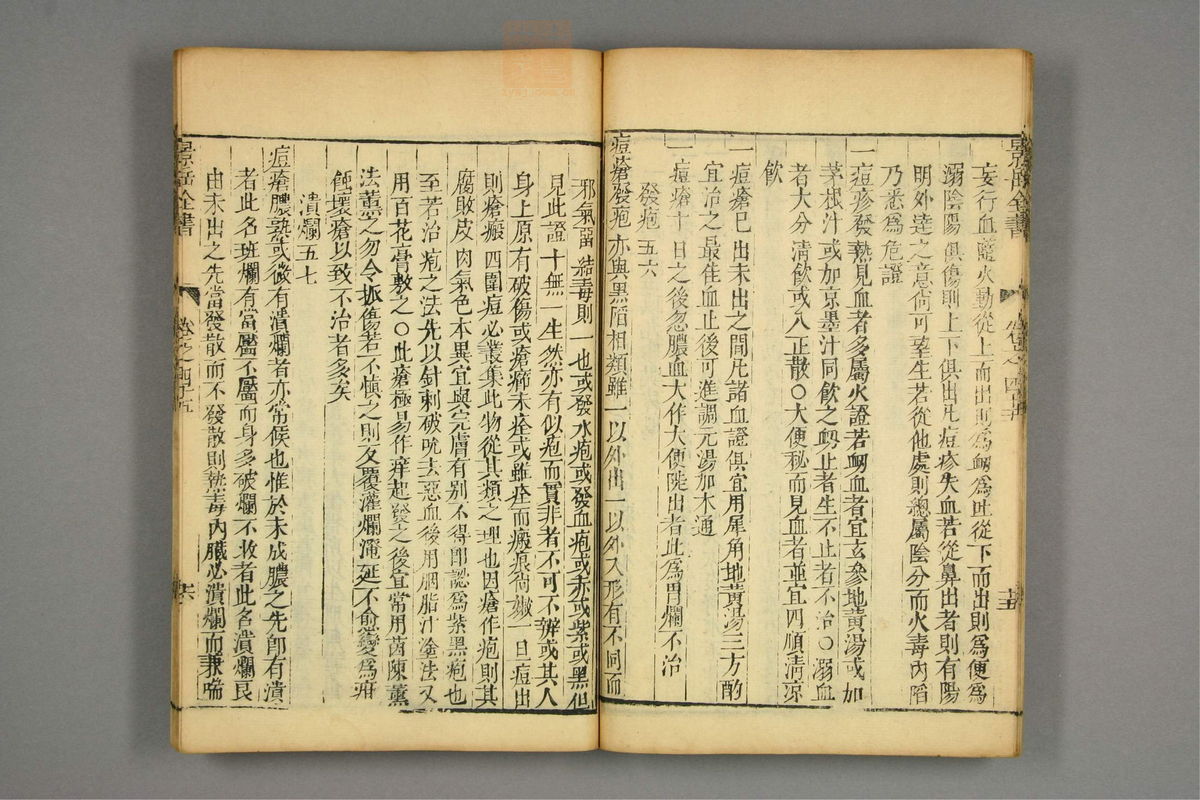 妄行血隨火動從上而出則爲衂爲吐從下而出則爲便爲
溺陰陽俱傷則上下俱出凡痘疹失血若從鼻出者則有陽
明外達之意何可望生若從他處則總屬陰分而火毒內陷
乃悉爲危證
一痘疹發熱見血者多屬火證若衂血者宜玄參地黃湯或加
茅根汁或加京墨汁同飲之衂止者生不止者不治○溺血
者大分清飲或八正散○大便秘而見血者並宜四順清凉
飲
一痘瘡已出未出之間凡諸血證俱宜用犀角地黃湯三方酌
宜治之最佳血止後可進調元湯加木通
一痘瘡十日之後忽膿血大作大便陡出者此爲胃爛不治
發疱五六
痘瘡發疱亦與黑陷相類雖一以外出一以外入形有不同而
邪氣畱結毒則一也或發水疱或發血疱或赤或紫或黑但
見此證十無一生然亦有似疱而實非者不可不辨或其人
身上原有破傷或瘡癤未痊或雖痊而瘢痕尚嫩一日痘出
則瘡瘢四圍痘必叢集此物從其類之理也因瘡作疱則其
腐敗皮肉氣色本異宜與完膚有别不得卽認爲紫黑疱也
至若治疱之法先以針刺破吮去惡血後用胭脂汁塗法又
用百花膏敷之○此瘡極易作痒起發之後宜常用茵陳薰
法薰之勿令抓傷若不愼之則反覆灌爛瀰延不愈變爲疳
蝕壞瘡以致不治者多矣
潰爛五七
痘瘡膿熟或微有潰爛者亦常候也惟於未成膿之先卽有潰
者此名斑爛有當靨不靨而身多破爛不收者此名潰爛良
由未出之先當發散而不發散則熱毒內臟必潰爛而兼喘
景岳全書
卷之四十五
十五
景岳全書
卷之四十五
十六